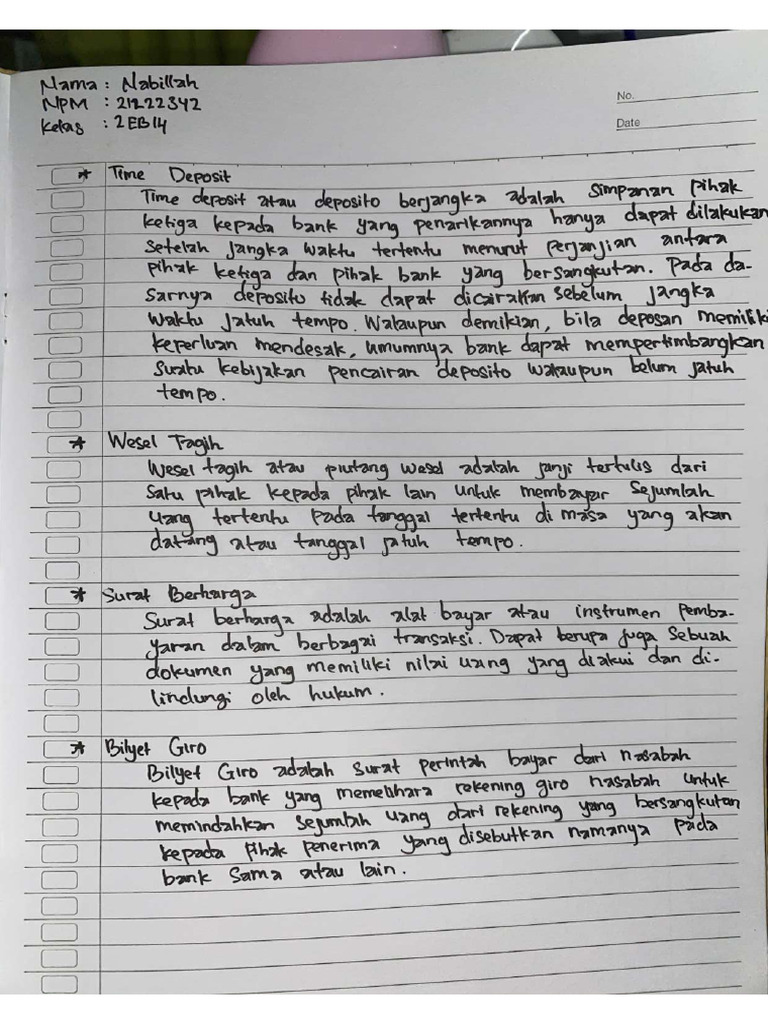 Nama : Nabillah
NPM : 21222342
Kelas : 2EB14
No.
Date
* Time Deposit
Time deposit atau deposito berjangka adalah simpanan pihak
ketiga kepada bank yang penarikannya hanya dapat dilakukan
setelah jangka waktu tertentu menurut perjanjian antara
pihak ketiga dan pihak bank yang bersangkutan. Pada da-
sarnya deposito tidak dapat dicairakan sebelum jangka
waktu jatuh tempo. Walaupun demikian, bila deposan memiliki
keperluan mendesak, umumnya bank dapat mempertimbangkan
suatu kebijakan pencairan deposito walaupun belum jatuh
tempo.
* Wesel Tagih
Wesel tagih atau piutang wesel adalah janji tertulis dari
satu pihak kepada pihak lain untuk membayar sejumlah
uang tertentu pada tanggal tertentu di masa yang akan
datang atau tanggal jatuh tempo.
* Surat Berharga
Surat berharga adalah alat bayar atau instrumen pemba-
yaran dalam berbagai transaksi. Dapat berupa juga sebuah
dokumen yang memiliki nilai uang yang diakui dan di-
lindungi oleh hukum.
* Bilyet Giro
Bilyet Giro adalah surat perintah bayar dari nasabah
kepada bank yang memelihara rekening giro nasabah untuk
memindahkan sejumlah uang dari rekening yang bersangkutan
kepada pihak penerima yang disebutkan namanya pada
bank sama atau lain.